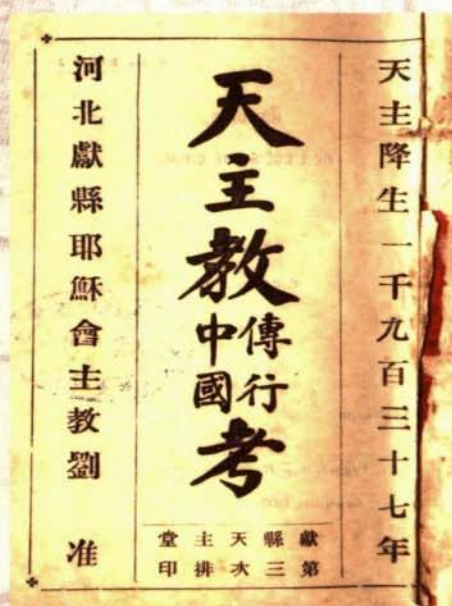 天主降生一千九百三十七年
天主教傳行中國考
獻縣天主堂
第三次排印
河北獻縣耶穌會主教劉 准